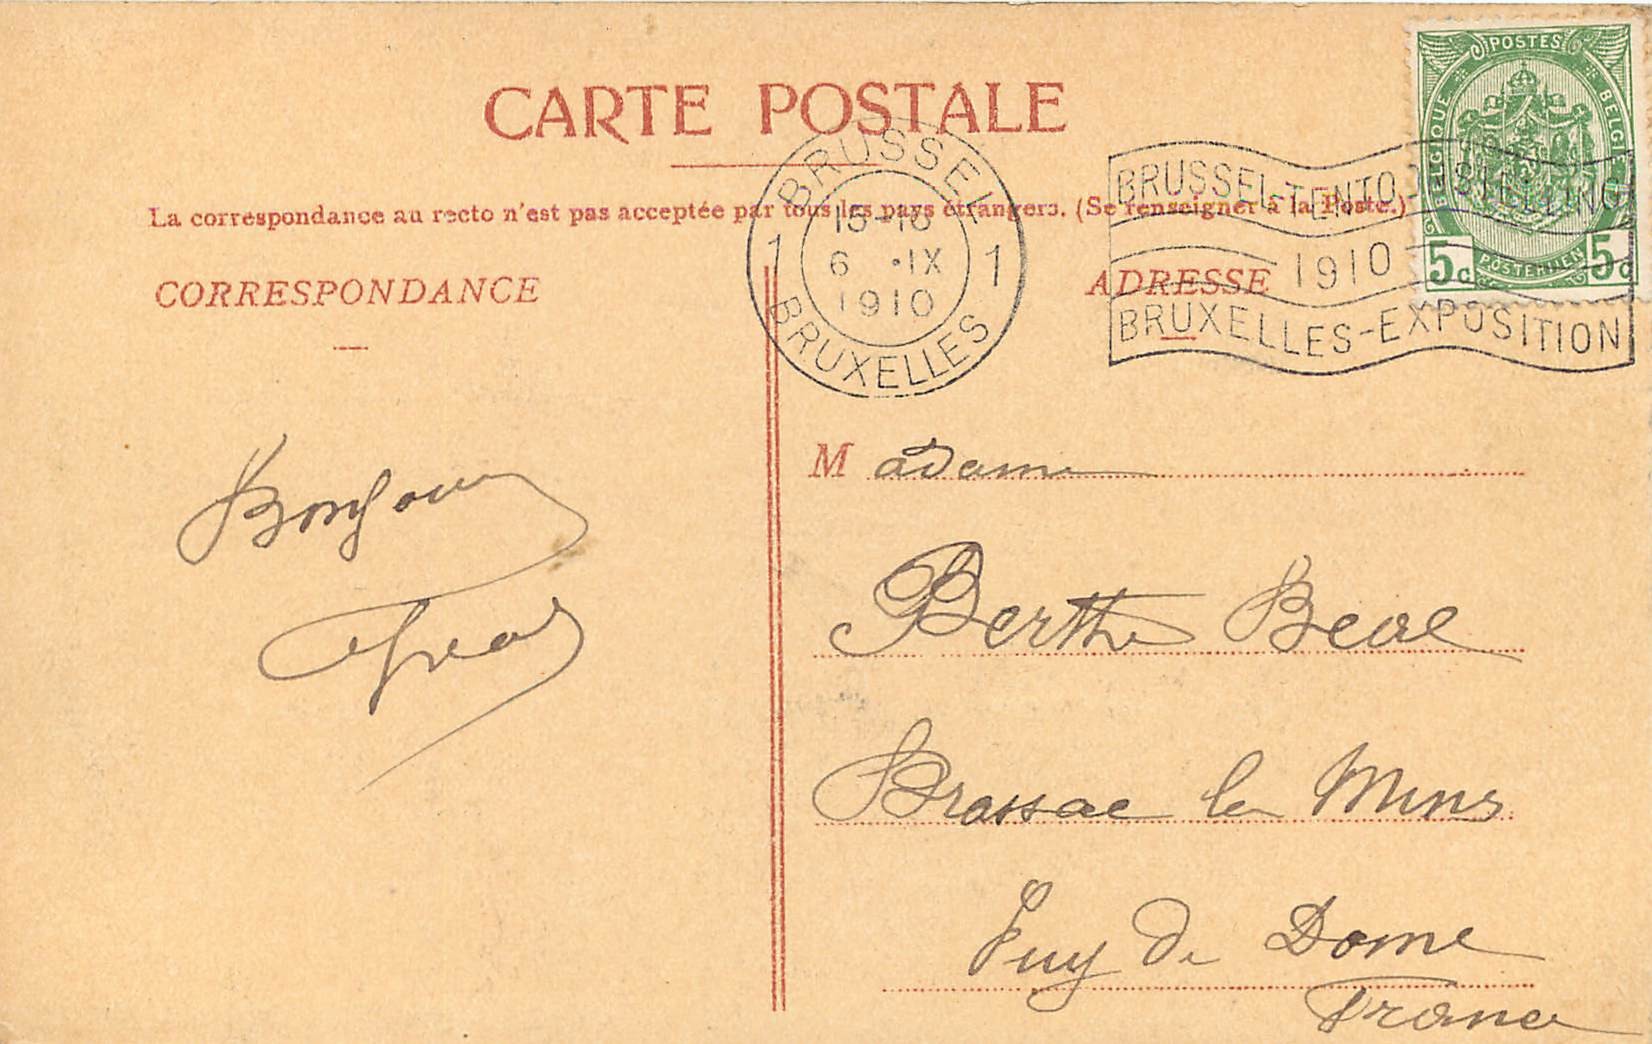 CARTE POSTALE
La correspondance au recto n'est pas acceptée par tous les pays étrangers. (Se renseigner à la Poste.)
CORRESPONDANCE
ADRESSE
BRUSSEL
15-16
1 6 ·IX 1
1910
BRUXELLES
BRUSSEL-TENTOONSTELLING
1910
BRUXELLES-EXPOSITION
POSTES
BELGIQUE
BELGIË
5c
POSTERIJEN
5c
Bonjour
Madame
Berthe
Brassac les Mines
Puy de Dome
France